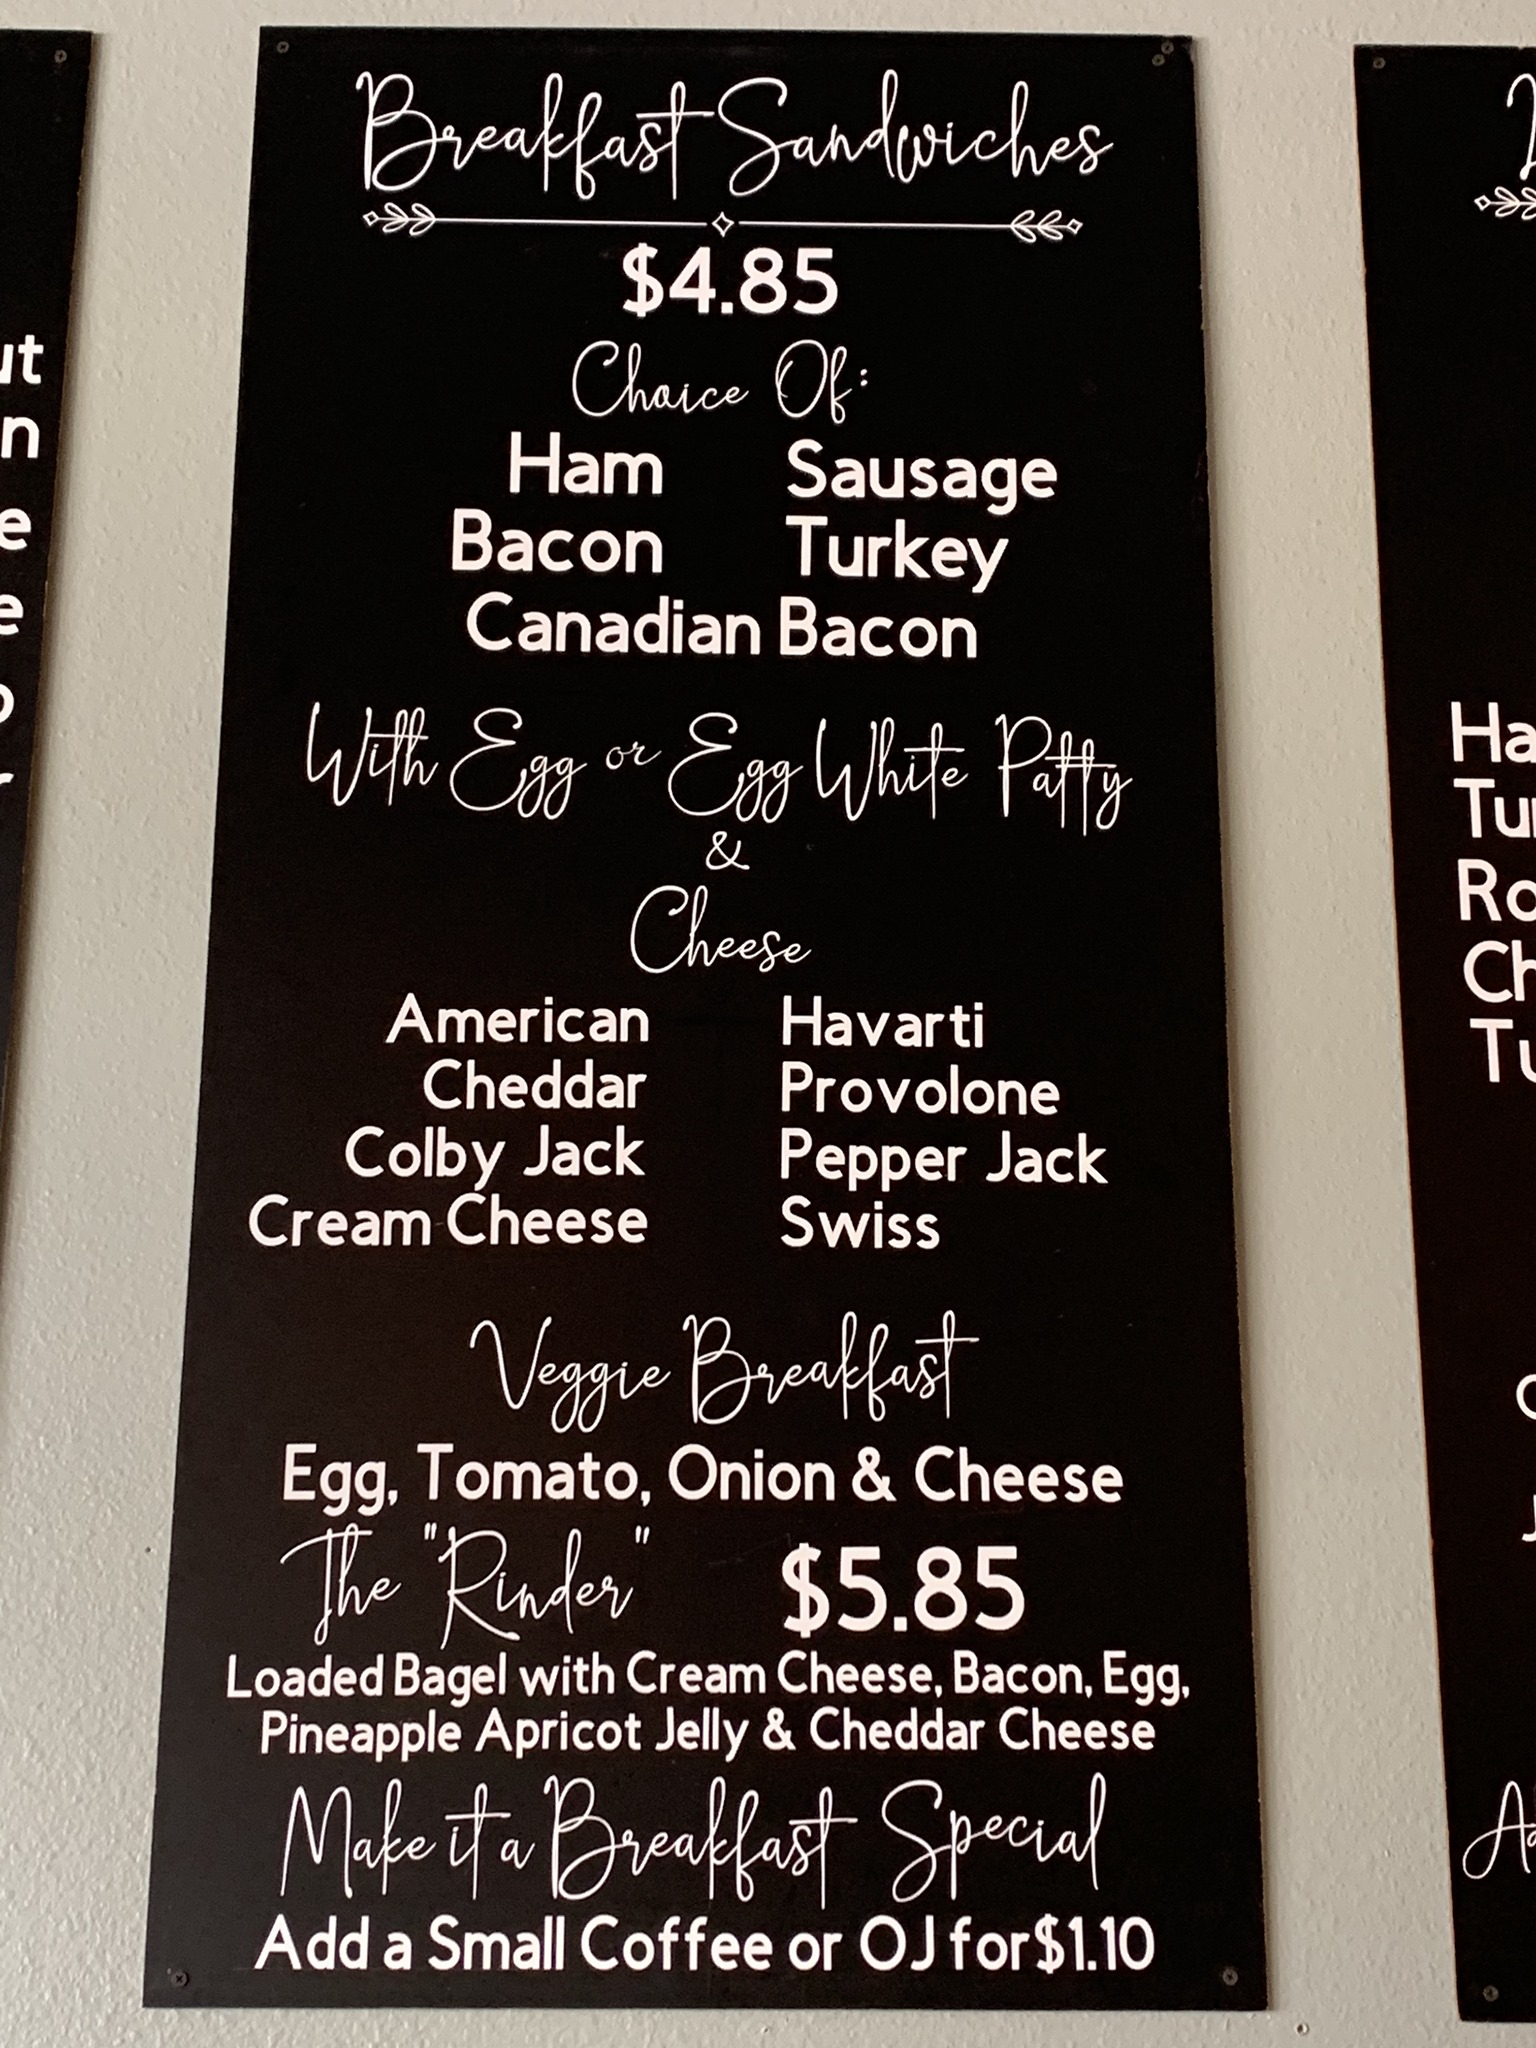 Breakfast Sandwiches
$4.85
Choice Of:
Ham Sausage
Bacon Turkey
Canadian Bacon
With Egg or Egg White Patty
&
Cheese
American Havarti
Cheddar Provolone
Colby Jack Pepper Jack
Cream Cheese Swiss
Veggie Breakfast
Egg, Tomato, Onion & Cheese
The "Rinder" $5.85
Loaded Bagel with Cream Cheese, Bacon, Egg,
Pineapple Apricot Jelly & Cheddar Cheese
Make it a Breakfast Special
Add a Small Coffee or OJ for $1.10